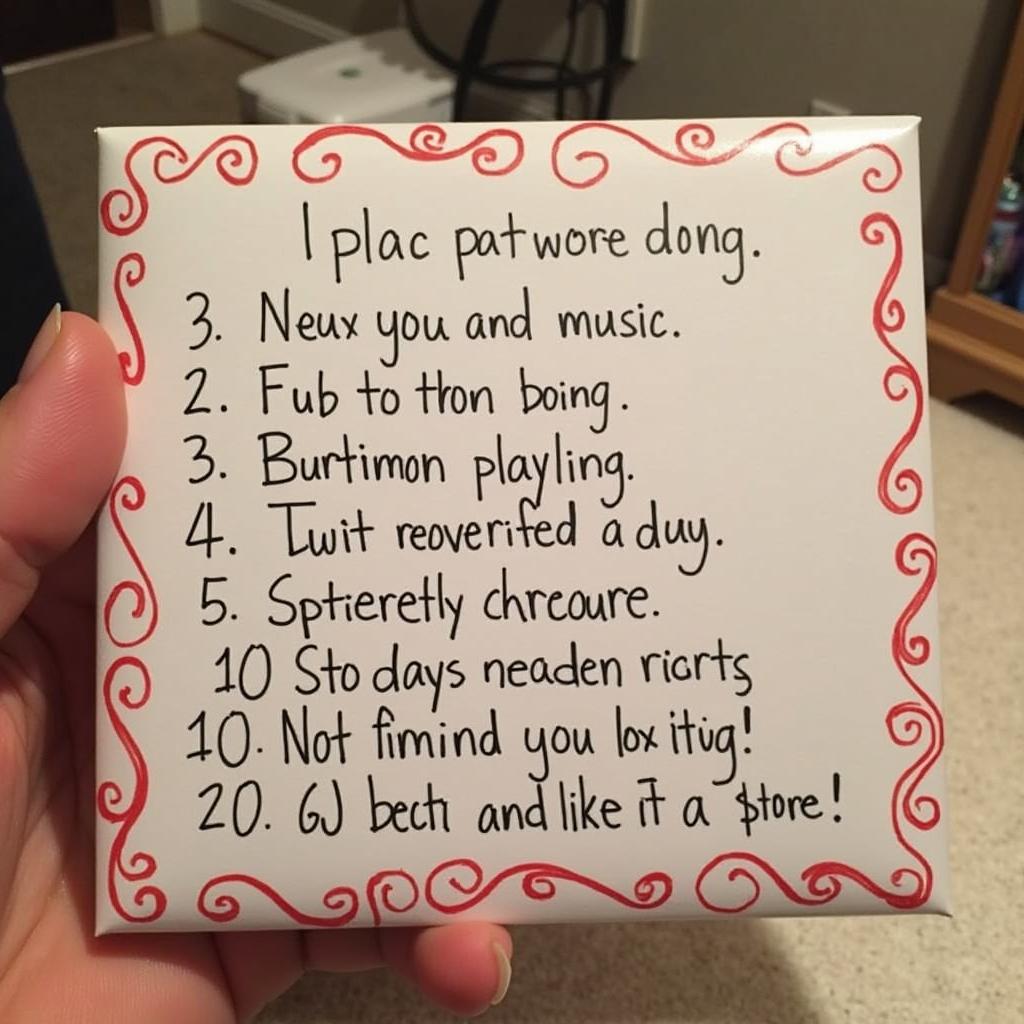 I plac patwore dong.
3. Neux you and music.
2. Fub to thon boing.
3. Burtimon playling.
4. Twit reoverifed a duy.
5. Sptieretly chrcoure.
10 Sto days neaden ricrts
10. Not fimind you lox itug!
20. GJ bech and like it a $tore!